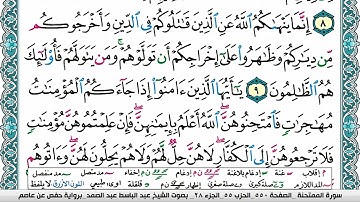 ٨ إِنَّمَا يَنْهَاكُمُ اللَّهُ عَنِ الَّذِينَ قَاتَلُوكُمْ فِي الدِّينِ وَأَخْرَجُوكُم
مِّن دِيَارِكُمْ وَظَاهَرُوا عَلَىٰ إِخْرَاجِكُمْ أَن تَوَلَّوْهُمْ وَمَن يَتَوَلَّهُمْ فَأُولَٰئِكَ
هُمُ الظَّالِمُونَ ٩ يَا أَيُّهَا الَّذِينَ آمَنُوا إِذَا جَاءَكُمُ الْمُؤْمِنَاتُ
مُهَاجِرَاتٍ فَامْتَحِنُوهُنَّ اللَّهُ أَعْلَمُ بِإِيمَانِهِنَّ فَإِنْ عَلِمْتُمُوهُنَّ مُؤْمِنَاتٍ
فَلَا تَرْجِعُوهُنَّ إِلَى الْكُفَّارِ لَا هُنَّ حِلٌّ لَّهُمْ وَلَا هُمْ يَحِلُّونَ لَهُنَّ وَآتُوهُم
سورة الممتحنة - الصفحة ٥٥٠ - الحزب ٥٥ - الجزء ٢٨ - بصوت الشيخ عبد الباسط عبد الصمد - برواية حفص عن عاصم